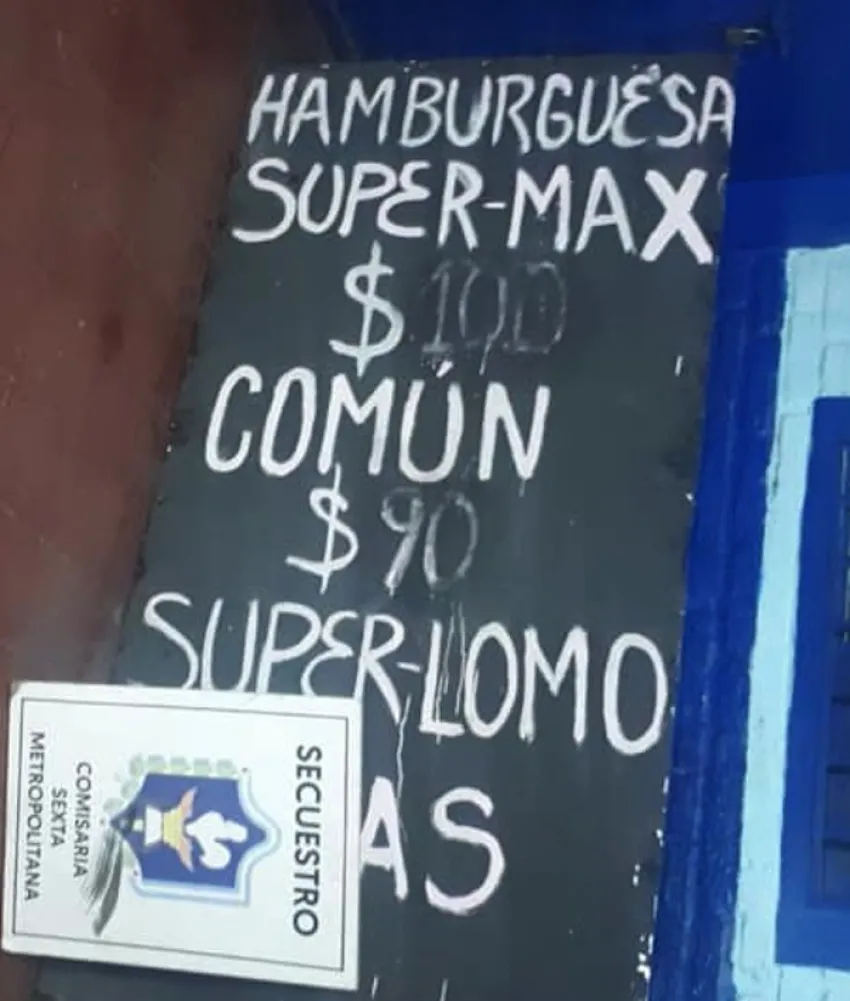 HAMBURGUESA
SUPER-MAX
$ 100
COMÚN
$ 90
SUPER-LOMO
AS
SECUESTRO
COMISARIA
SEXTA
METROPOLITANA